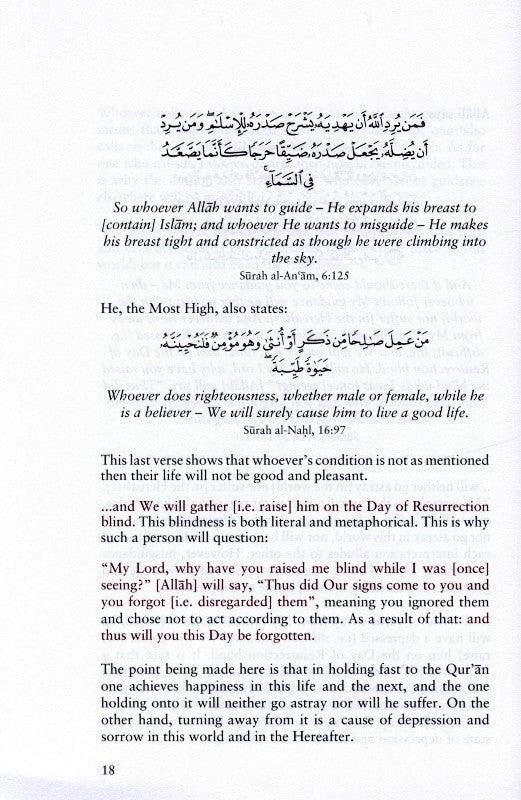 فَمَن يُرِدِ ٱللَّهُ أَن يَهْدِيَهُۥ يَشْرَحْ صَدْرَهُۥ لِلْإِسْلَٰمِ ۖ وَمَن يُرِدْ
أَن يُضِلَّهُۥ يَجْعَلْ صَدْرَهُۥ ضَيِّقًا حَرَجًا كَأَنَّمَا يَصَّعَّدُ
فِى ٱلسَّمَآءِ ۚ
So whoever Allāh wants to guide – He expands his breast to
[contain] Islām; and whoever He wants to misguide – He makes
his breast tight and constricted as though he were climbing into
the sky.
Sūrah al-Anʿām, 6:125
He, the Most High, also states:
مَنْ عَمِلَ صَٰلِحًا مِّن ذَكَرٍ أَوْ أُنثَىٰ وَهُوَ مُؤْمِنٌ فَلَنُحْيِيَنَّهُۥ
حَيَوٰةً طَيِّبَةً ۖ
Whoever does righteousness, whether male or female, while he
is a believer – We will surely cause him to live a good life.
Sūrah al-Naḥl, 16:97
This last verse shows that whoever's condition is not as mentioned
then their life will not be good and pleasant.
...and We will gather [i.e. raise] him on the Day of Resurrection
blind. This blindness is both literal and metaphorical. This is why
such a person will question:
“My Lord, why have you raised me blind while I was [once]
seeing?” [Allāh] will say, “Thus did Our signs come to you and
you forgot [i.e. disregarded] them”, meaning you ignored them
and chose not to act according to them. As a result of that: and
thus will you this Day be forgotten.
The point being made here is that in holding fast to the Qur'ān
one achieves happiness in this life and the next, and the one
holding onto it will neither go astray nor will he suffer. On the
other hand, turning away from it is a cause of depression and
sorrow in this world and in the Hereafter.
18